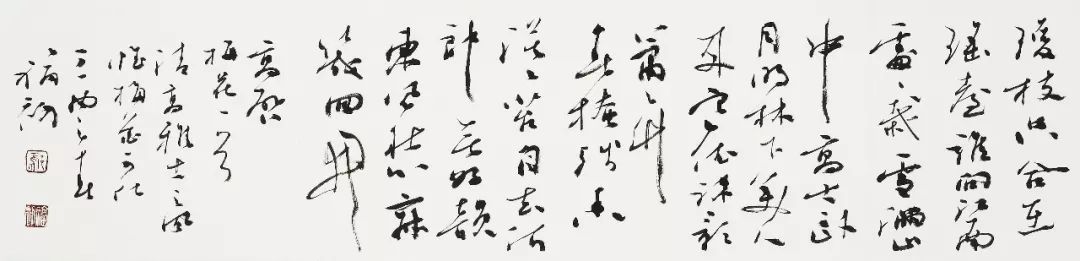 瓊枝只合在
瑤臺誰向江南
處々栽雪滿山
中高士臥
月明林下美人
來寒依疏影
蕭々竹
春掩殘香
漠々苔自去何
郎無好韻
東風愁寂
幾回開
高啓
梅花一首
清高雅士之風
惟梅花可比